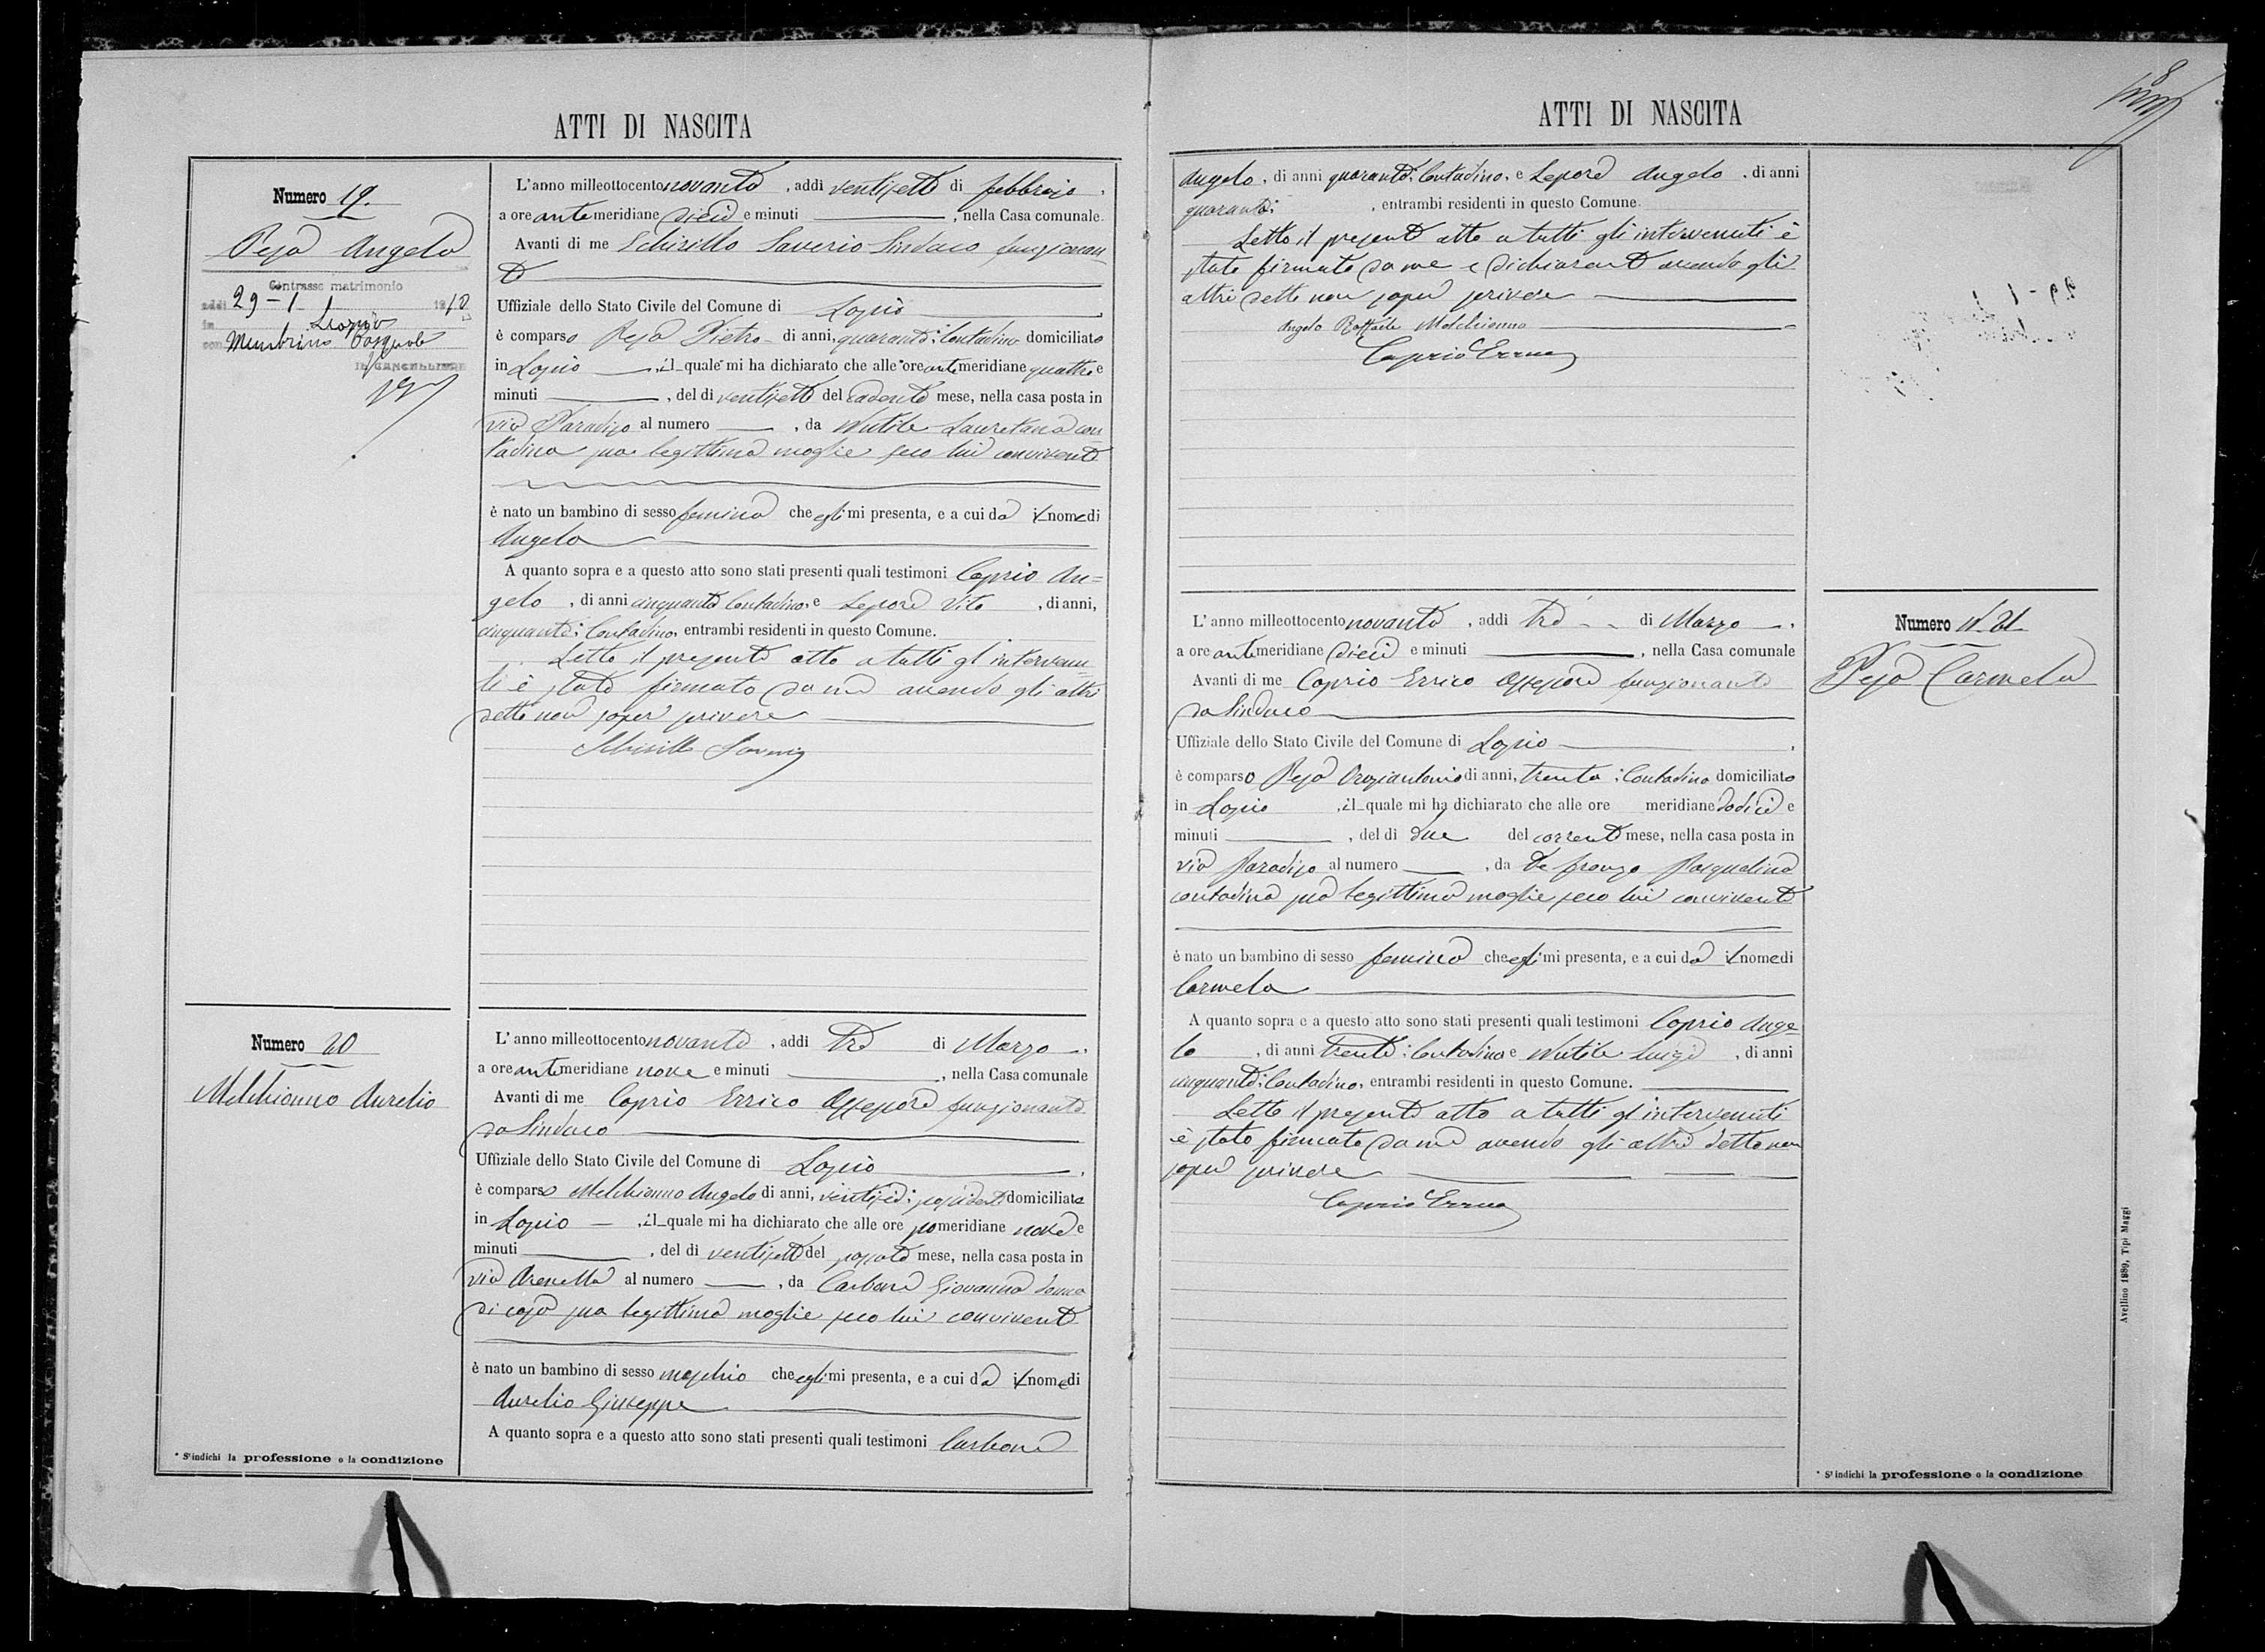 ATTI DI NASCITA
Numero 19.
Pesa Angela
Contrasse matrimonio
addì 29-1 1912
in Lapio
con Membrino Pasquale
IL CANCELLIERE
L'anno milleottocentonovanta, addì ventisette di febbraio,
a ore antimeridiane dieci e minuti ———, nella Casa comunale.
Avanti di me Schirillo Saverio Sindaco funzionan
te
Uffiziale dello Stato Civile del Comune di Lapio
è comparso Pesa Pietro di anni, quaranta; Contadino domiciliato
in Lapio —, il quale mi ha dichiarato che alle ore antimeridiane quattro e
minuti ———, del dì ventisette del cadente mese, nella casa posta in
via Paradiso al numero ——, da Nutile Lauretana con
tadina sua legittima moglie seco lui convivente
è nato un bambino di sesso femina che egli mi presenta, e a cui dà il nome di
Angela
A quanto sopra e a questo atto sono stati presenti quali testimoni Caprio An=
gelo, di anni cinquanta Contadino, e Lepore Vito, di anni,
cinquanta; Contadino, entrambi residenti in questo Comune.
Letto il presente atto a tutti gl'intervenu=
ti è stato firmato da me avendo gli altri
detto non saper scrivere
Schirillo Saverio
Numero 20
Melchionno Aurelio
L'anno milleottocentonovanta, addì tre di Marzo,
a ore antimeridiane nove e minuti ———, nella Casa comunale
Avanti di me Caprio Errico Assessore funzionante
da Sindaco
Uffiziale dello Stato Civile del Comune di Lapio,
è comparso Melchionno Angelo di anni, ventisei; possidente domiciliato
in Lapio —, il quale mi ha dichiarato che alle ore pomeridiane nove e
minuti ———, del dì ventisette del passato mese, nella casa posta in
via Arenella al numero ——, da Carbone Giovanna donna
di casa sua legittima moglie seco lui convivente
è nato un bambino di sesso maschio che egli mi presenta, e a cui dà il nome di
Aurelio Giuseppe
A quanto sopra e a questo atto sono stati presenti quali testimoni Carbone
* S'indichi la professione o la condizione
ATTI DI NASCITA
8
Angelo, di anni quaranta; Contadino, e Lepore Angelo, di anni
quaranta; , entrambi residenti in questo Comune.
Letto il presente atto a tutti gli intervenuti è
stato firmato da me e dichiarante avendo gli
altri detto non saper scrivere
Angelo Raffaele Melchionno
Caprio Errico
Numero N. 21
Pesa Carmela
L'anno milleottocentonovanta, addì tre di Marzo,
a ore antimeridiane dieci e minuti ———, nella Casa comunale
Avanti di me Caprio Errico Assessore funzionante
da Sindaco
Uffiziale dello Stato Civile del Comune di Lapio,
è comparso Pesa Oraziantonio di anni, trenta; Contadino domiciliato
in Lapio, il quale mi ha dichiarato che alle ore meridiane dodici e
minuti ———, del dì due del corrente mese, nella casa posta in
via Paradiso al numero ——, da De Franzo Pasqualina
contadina sua legittima moglie seco lui convivente
è nato un bambino di sesso femina che egli mi presenta, e a cui dà il nome di
Carmela
A quanto sopra e a questo atto sono stati presenti quali testimoni Caprio Ange
lo, di anni trenta; Contadino e Nutile Luigi, di anni
cinquanta; Contadino, entrambi residenti in questo Comune.
Letto il presente atto a tutti gl'intervenuti
è stato firmato da me avendo gli altri detto non
saper scrivere
Caprio Errico
* S'indichi la professione o la condizione
Avellino 1889, Tipi Maggi